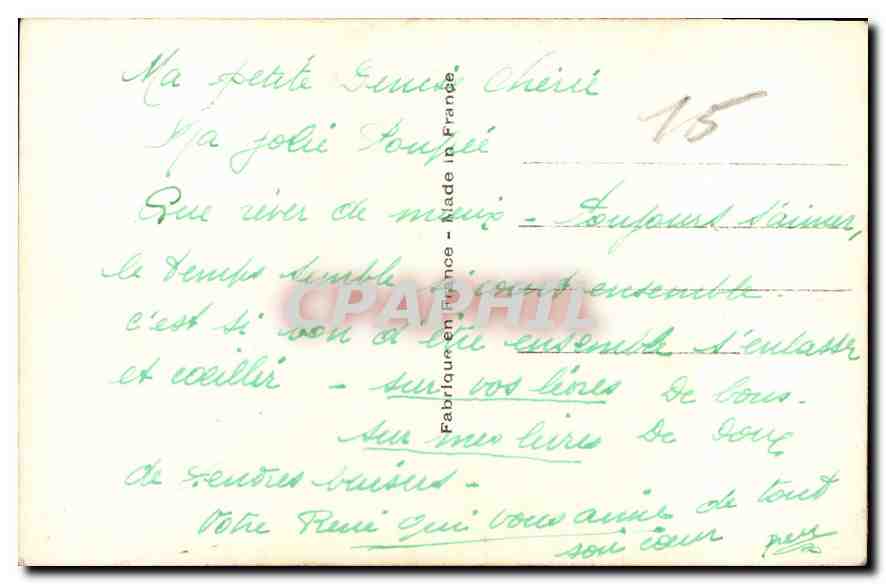 Ma petite chérie
15
Ma jolie Poupée
Que rêver de mieux - Toujours s'aimer,
le temps semble si court ensemble.
CPAPHIL
c'est si bon d'être ensemble s'enlasser
et cueillir - sur vos lèvres De bons -
sur mes lèvres De doux
de tendres baisers -
Votre René qui vous aime de tout
son cœur
Fabrique en France - Made in France